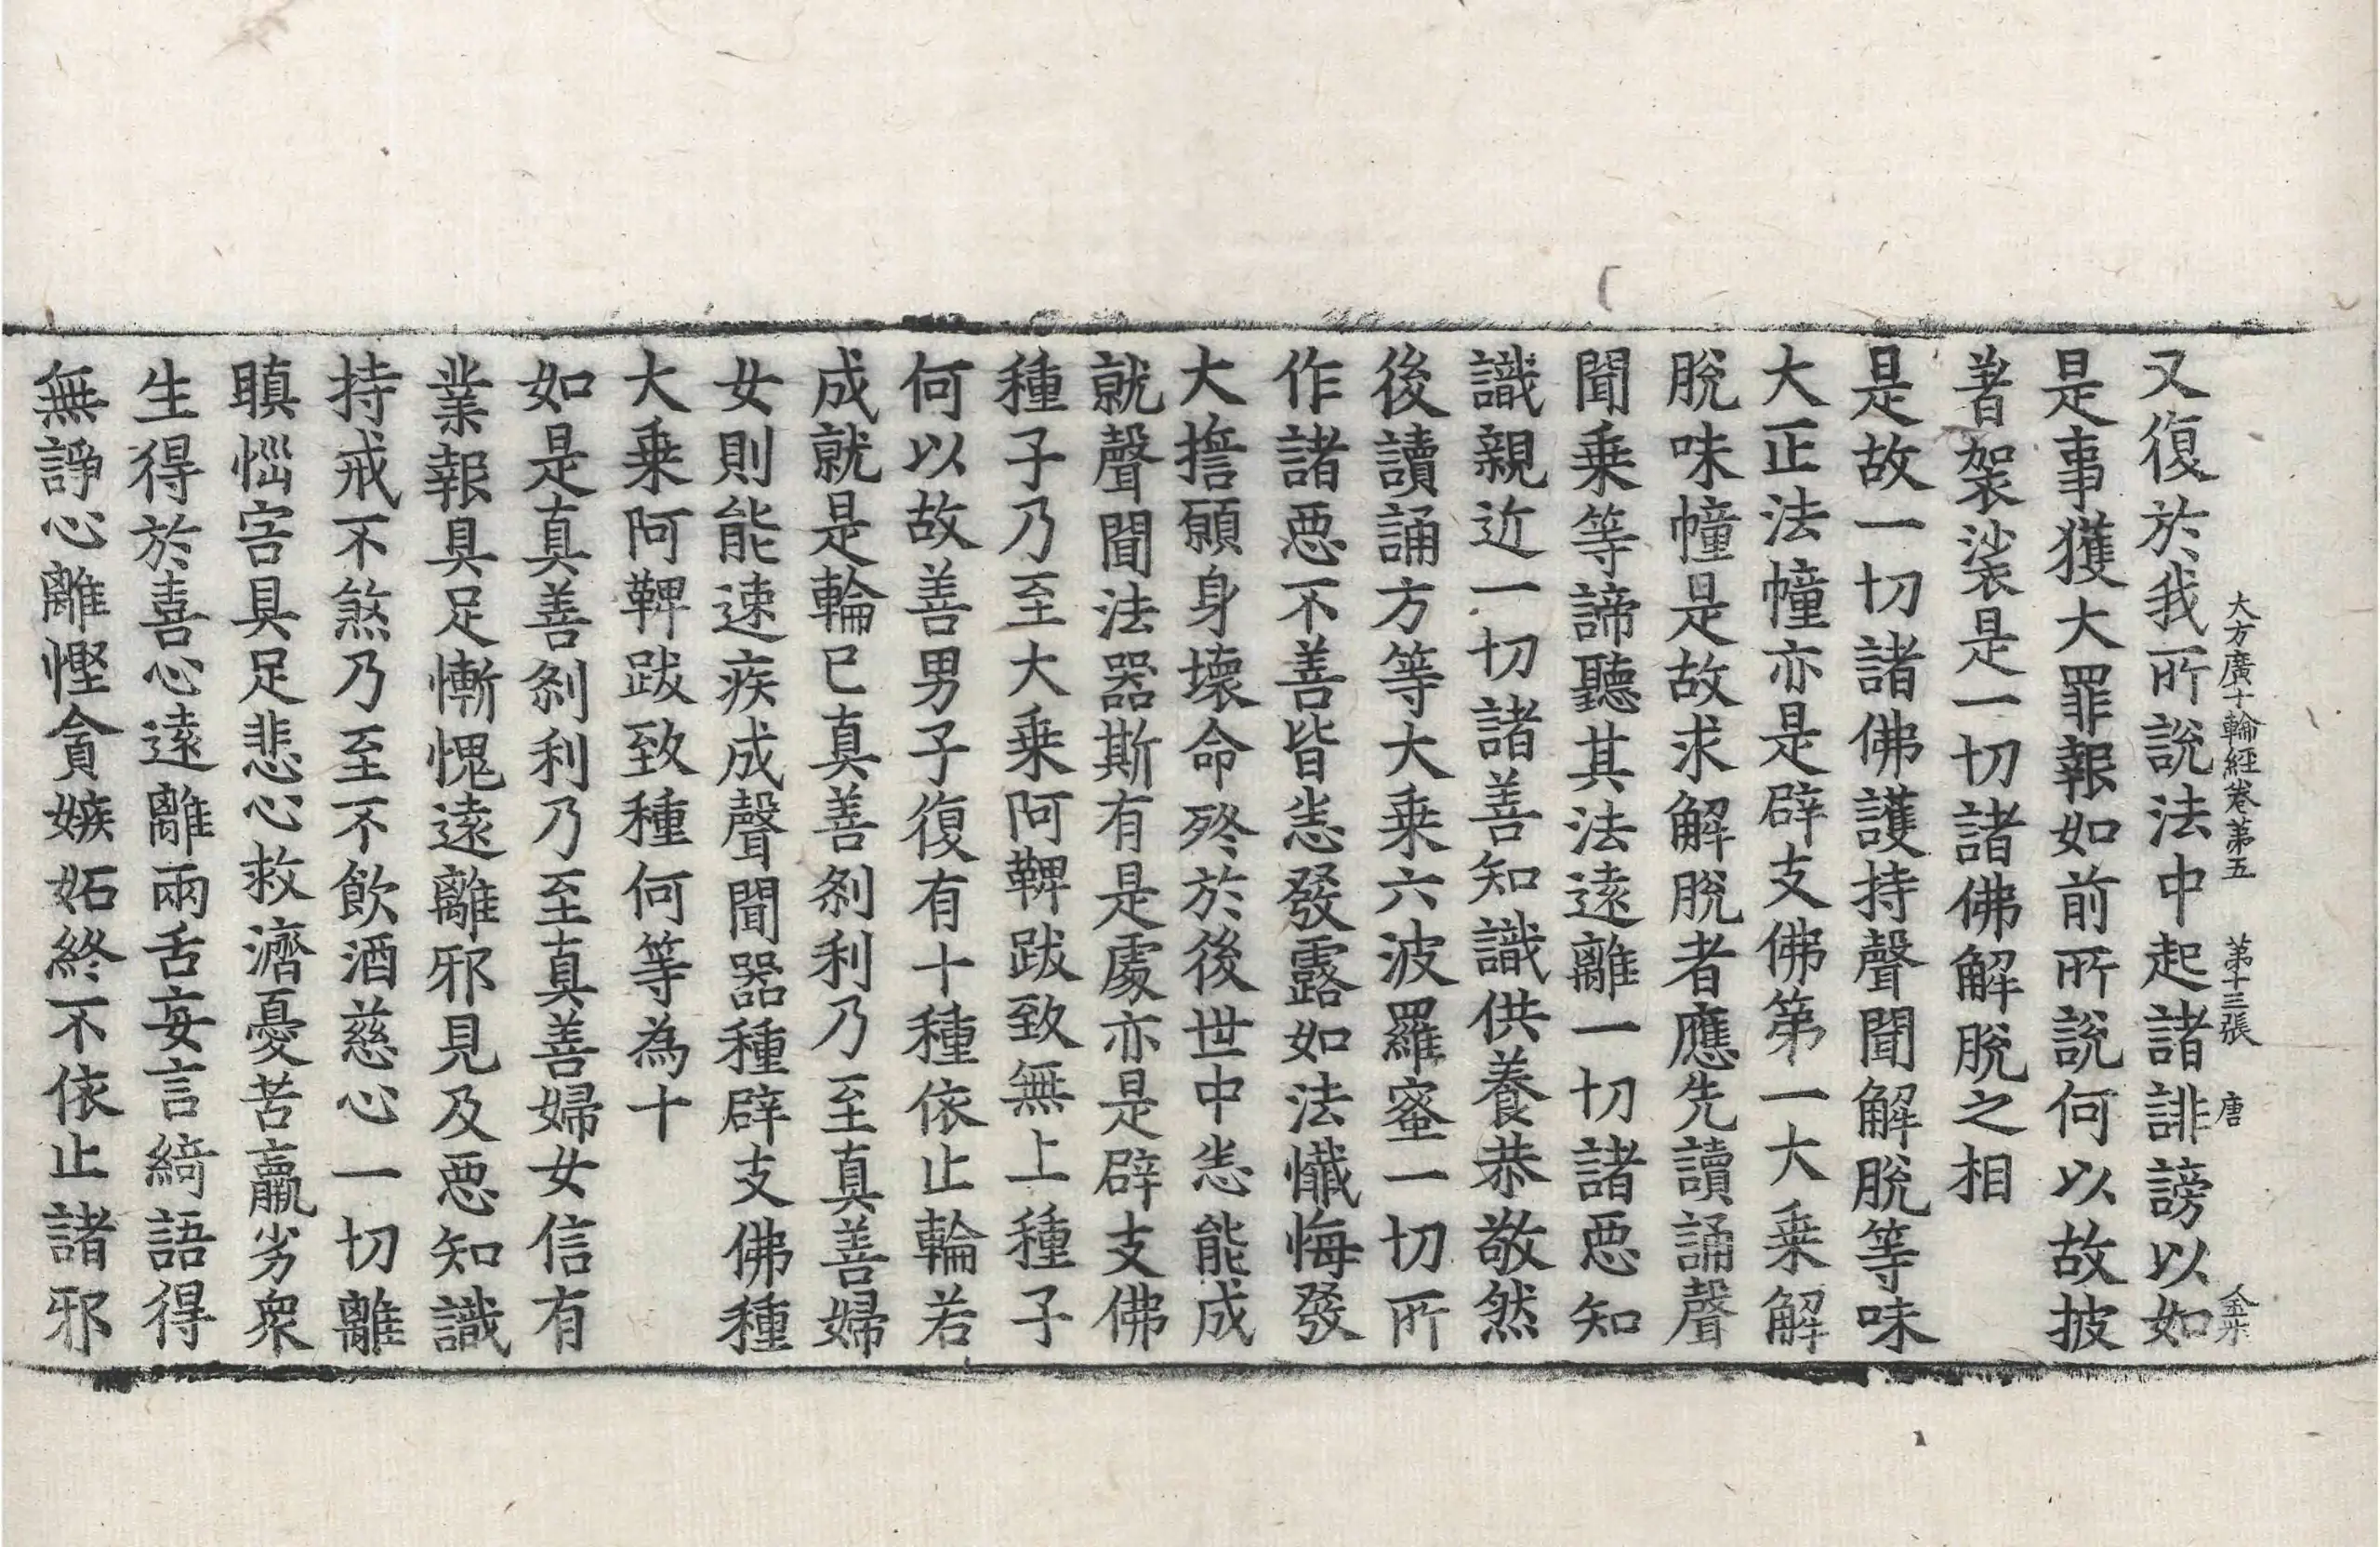 大方廣十輪經卷第五　第十三張　唐
又復於我所說法中起諸誹謗以如
是事獲大罪報如前所說何以故披
著袈裟是一切諸佛解脫之相
是故一切諸佛護持聲聞解脫等味
大正法幢亦是辟支佛第一大乗解
脫味幢是故求解脫者應先讀誦聲
聞乗等諦聽其法遠離一切諸惡知
識親近一切諸善知識供養恭敬然
後讀誦方等大乗六波羅蜜一切所
作諸惡不善皆悉發露如法懺悔發
大擔願身壞命終於後世中悉能成
就聲聞法器斯有是處亦是辟支佛
種子乃至大乗阿鞞跋致無上種子
何以故善男子復有十種依止輪若
成就是輪已真善剎利乃至真善婦
女則能速疾成聲聞器種辟支佛種
大乗阿鞞跋致種何等為十
如是真善剎利乃至真善婦女信有
業報具足慚愧遠離邪見及惡知識
持戒不煞乃至不飲酒慈心一切離
瞋惱害具足悲心救濟憂苦羸劣衆
生得於喜心遠離兩舌妄言綺語得
無諍心離慳貪嫉妬終不依止諸邪